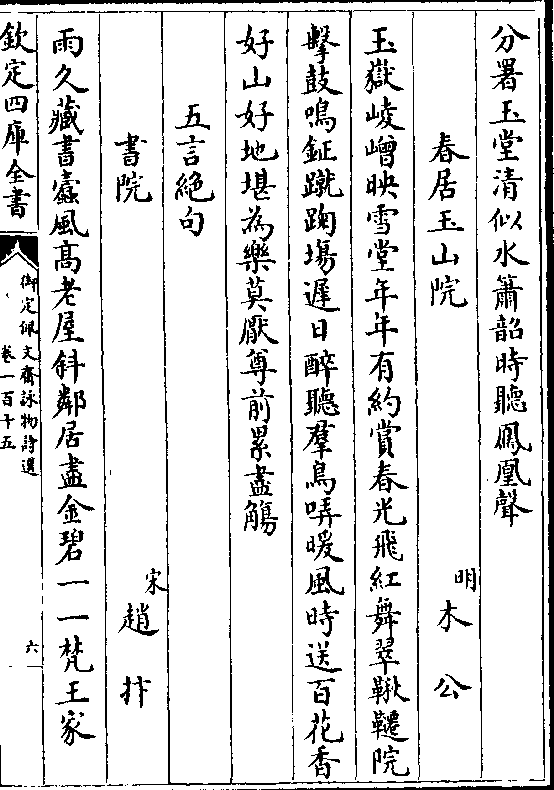 分署玉堂清似水簫韶時聽鳳凰聲
春居玉山院
明木公
玉嶽崚嶒映雪堂年年有約賞春光飛紅舞翠鞦韆院
擊鼓鳴鉦蹴踘場遲日醉聽羣鳥哢暖風時送百花香
好山好地堪為樂莫厭尊前累盡觴
五言絶句
書院
宋趙抃
雨久藏書蠧風髙老屋斜鄰居盡金碧一一梵王家
欽定四庫全書
御定佩文齋詠物詩選
卷一百十五
六